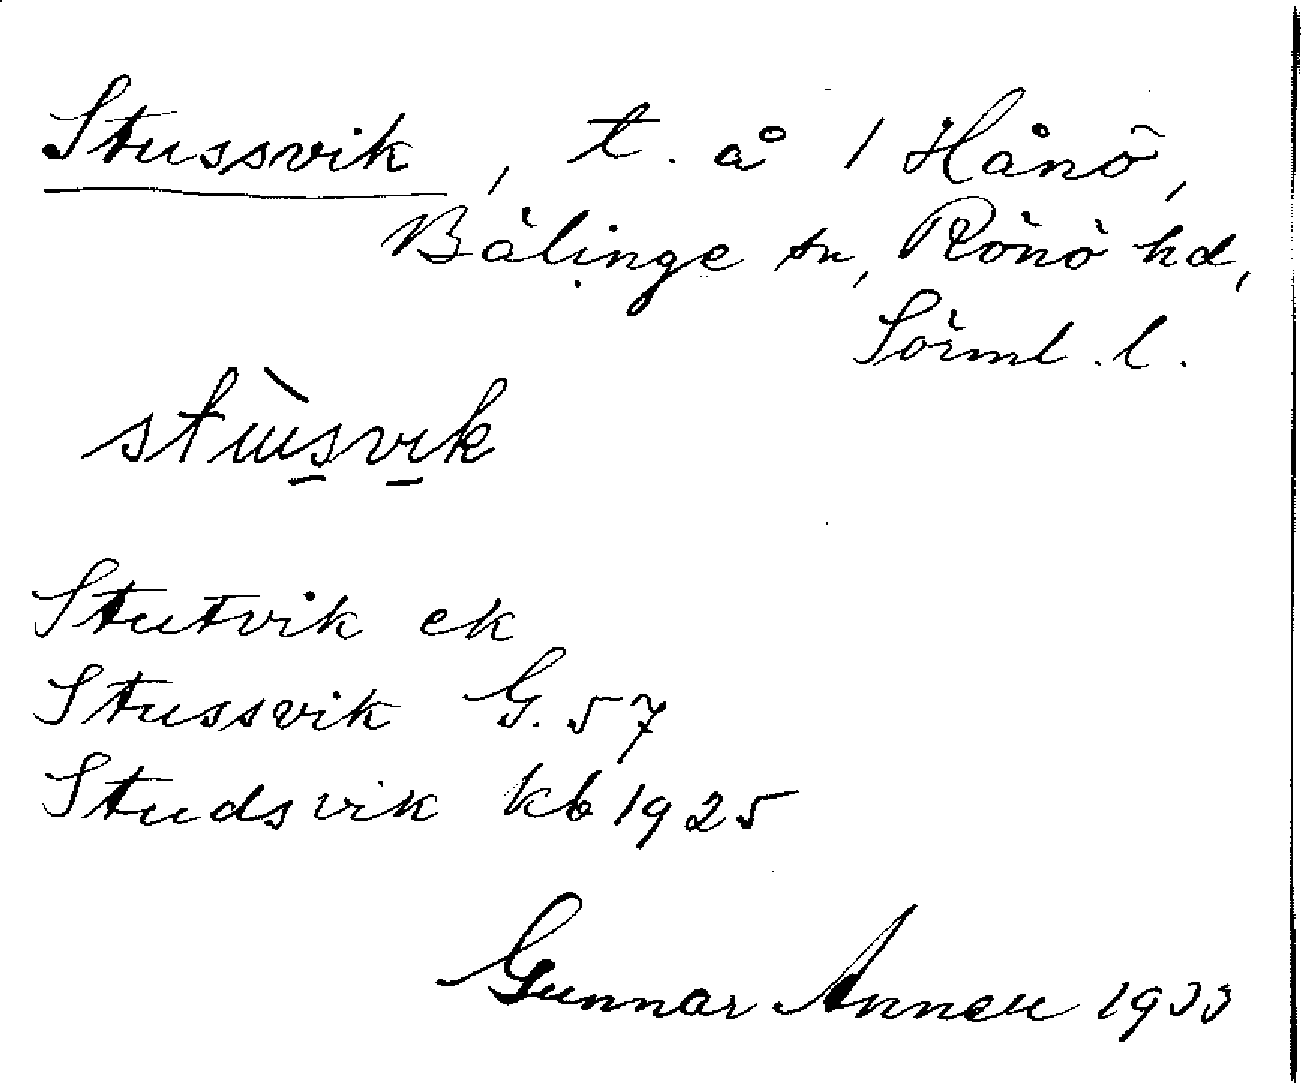 Stussvik, t. å 1 Hånö,
Bälinge sn, Rönö hd,
Sörml. l.
stùsvik
Stutvik ek
Stussvik G. 57
Studsvik kb 1925
Gunnar Annell 1933